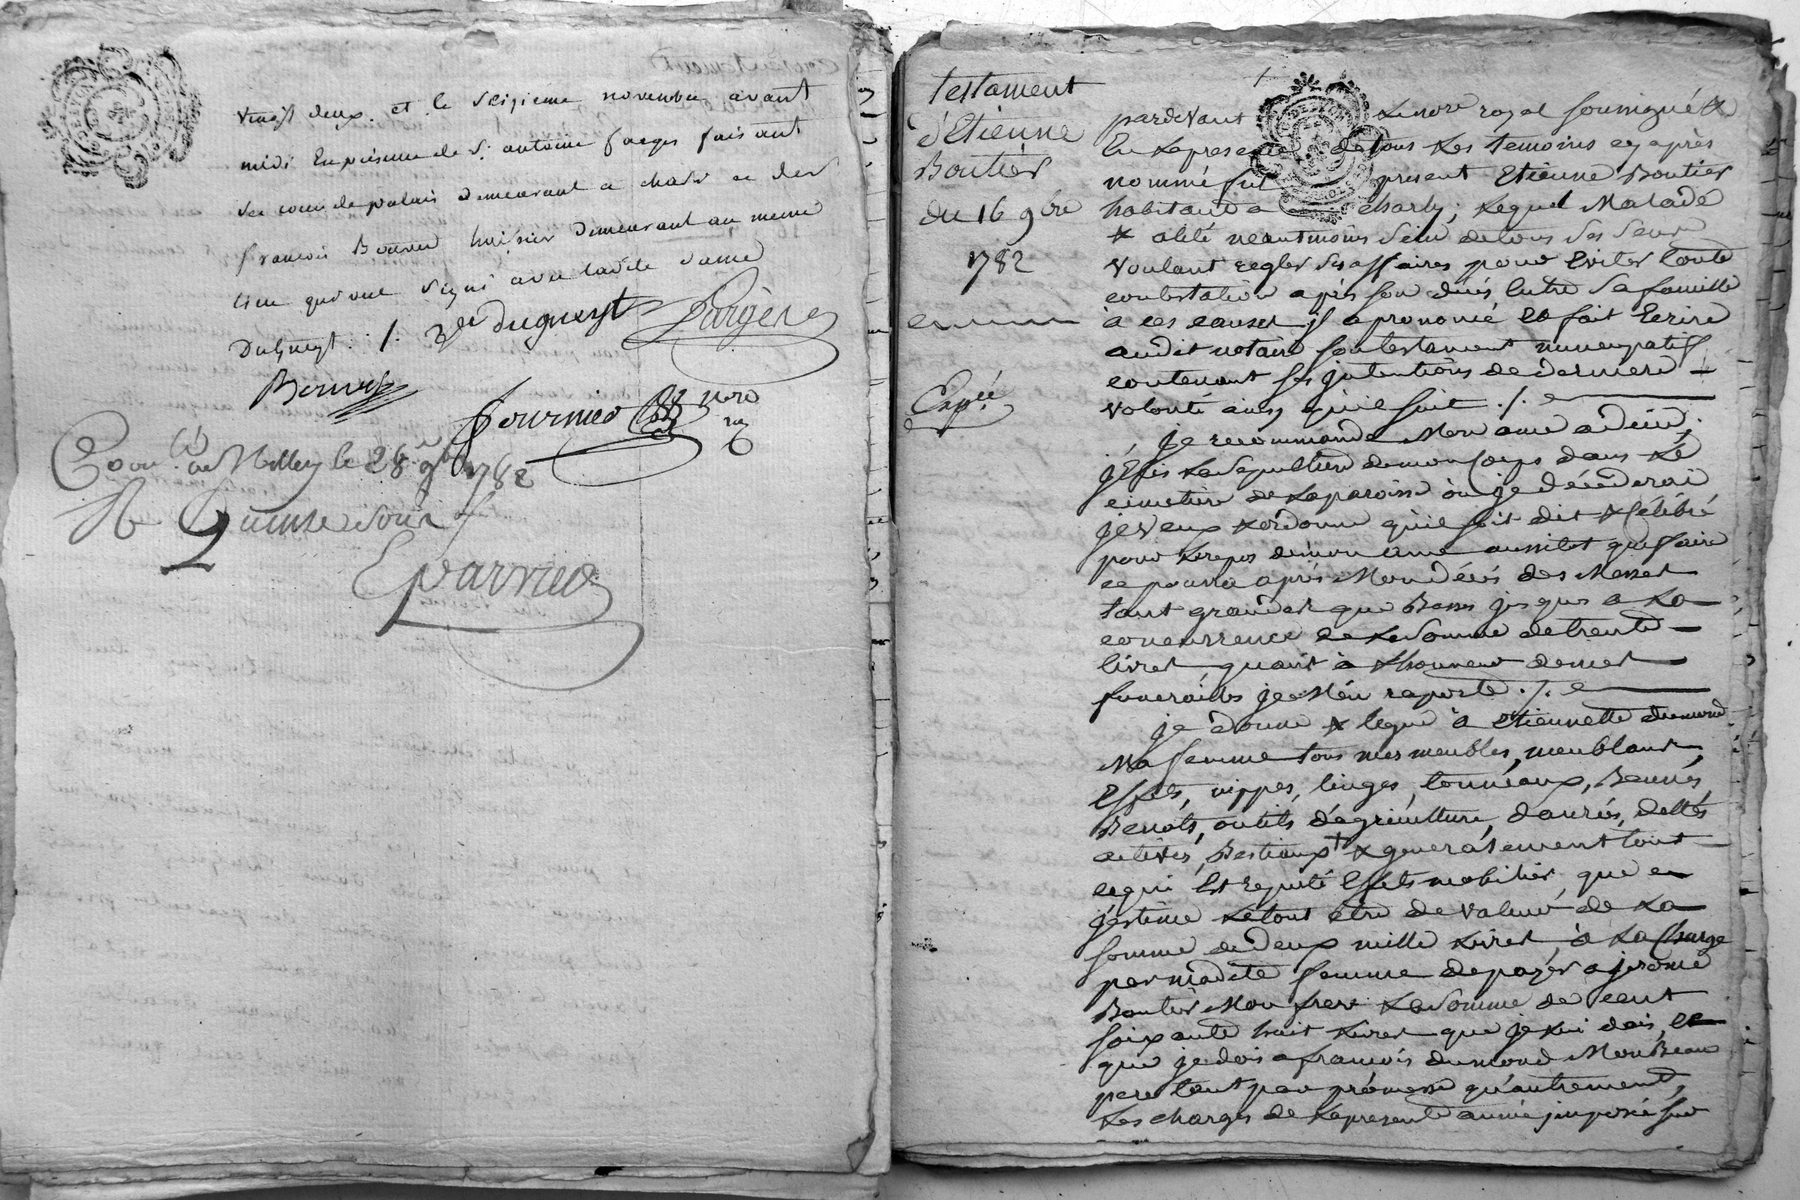 vingt deux. et le seizieme novembre avant
midi En presence de Sr. antoine farges faisant
demeurant a charly et de Sr
françois Bonnet huissier demeurant au meme
lieu qui ont signé avec ladite dame
Dugueyt ./.
dugueyt
fargere
Fournier
nore
Con.lé a Milley le 28 9bre 1782
R Quinze sous
Eparvier
testament
d'Etienne
Boutier
du 16 9bre
1782
Expée
pardevant Le nore royal soussigné &
En Lapresence de tous Les temoins cy après
nommé fut present Etienne Boutier
habitant a charly, Lequel Malade
& alité neantmoins sein de tous ses sens
voulant regler ses affaires pour Eviter toute
contestation après son decès Entre sa famille
à ces causes il a prononcé et fait Ecrire
audit notaire son testament nuncupatif
contenant ses jntentions de derniere
volonté ainsy qu'il suit ./.
je recommande Mon ame a dieu,
j'Elis La sepulture de mon Corps dans Le
cimetiere de Laparoisse ou je décéderai
je veux & ordonne qu'il soit dit & Célébré
pour Lerepos de mon ame aussitot que faire
ce pourra après Mon décès des Messes
tant grandes que Basses jusques a La
concurrence de La Somme de trente
livres, quant à L'honneur de mes
funerailles je M'en raporte ./.
je donne & legue à Etiennette dumond
Ma femme tous mes meubles, meublants,
Effets, nippes, linges, tonneaux, Bennes,
Benots, outils d'agriculture, danrées, dettes
actives, Bestiaux & generalement tout
ce qui Est reputé Effets mobilier, que
j'estime Le tout être de valeur de La
somme de deux mille Livres, à La Charge
par madite femme de payer a jerome
Boutier Mon frere La Somme de cent
soixante huit Livres que je Lui dois, et
que je dois a francois dumond Mon Beau
pere tant par promesse qu'autrement,
Les charges de Lapresente année jmposée sur